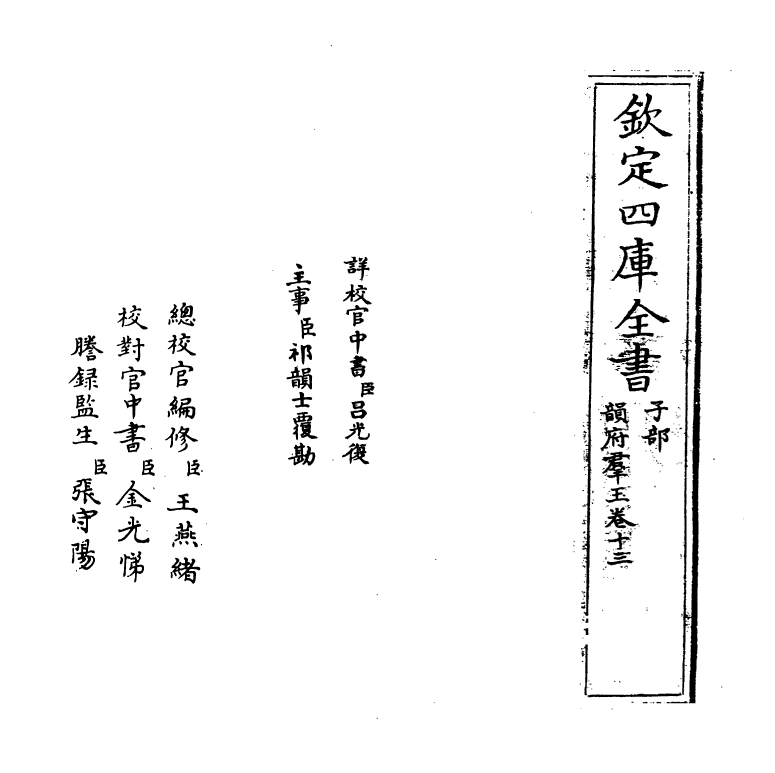 欽定四庫全書
子部
韻府羣玉卷十三
詳校官中書臣呂光復
主事臣祁韻士覆勘
總校官編修臣王燕緒
校對官中書臣金光悌
謄録監生臣張守陽